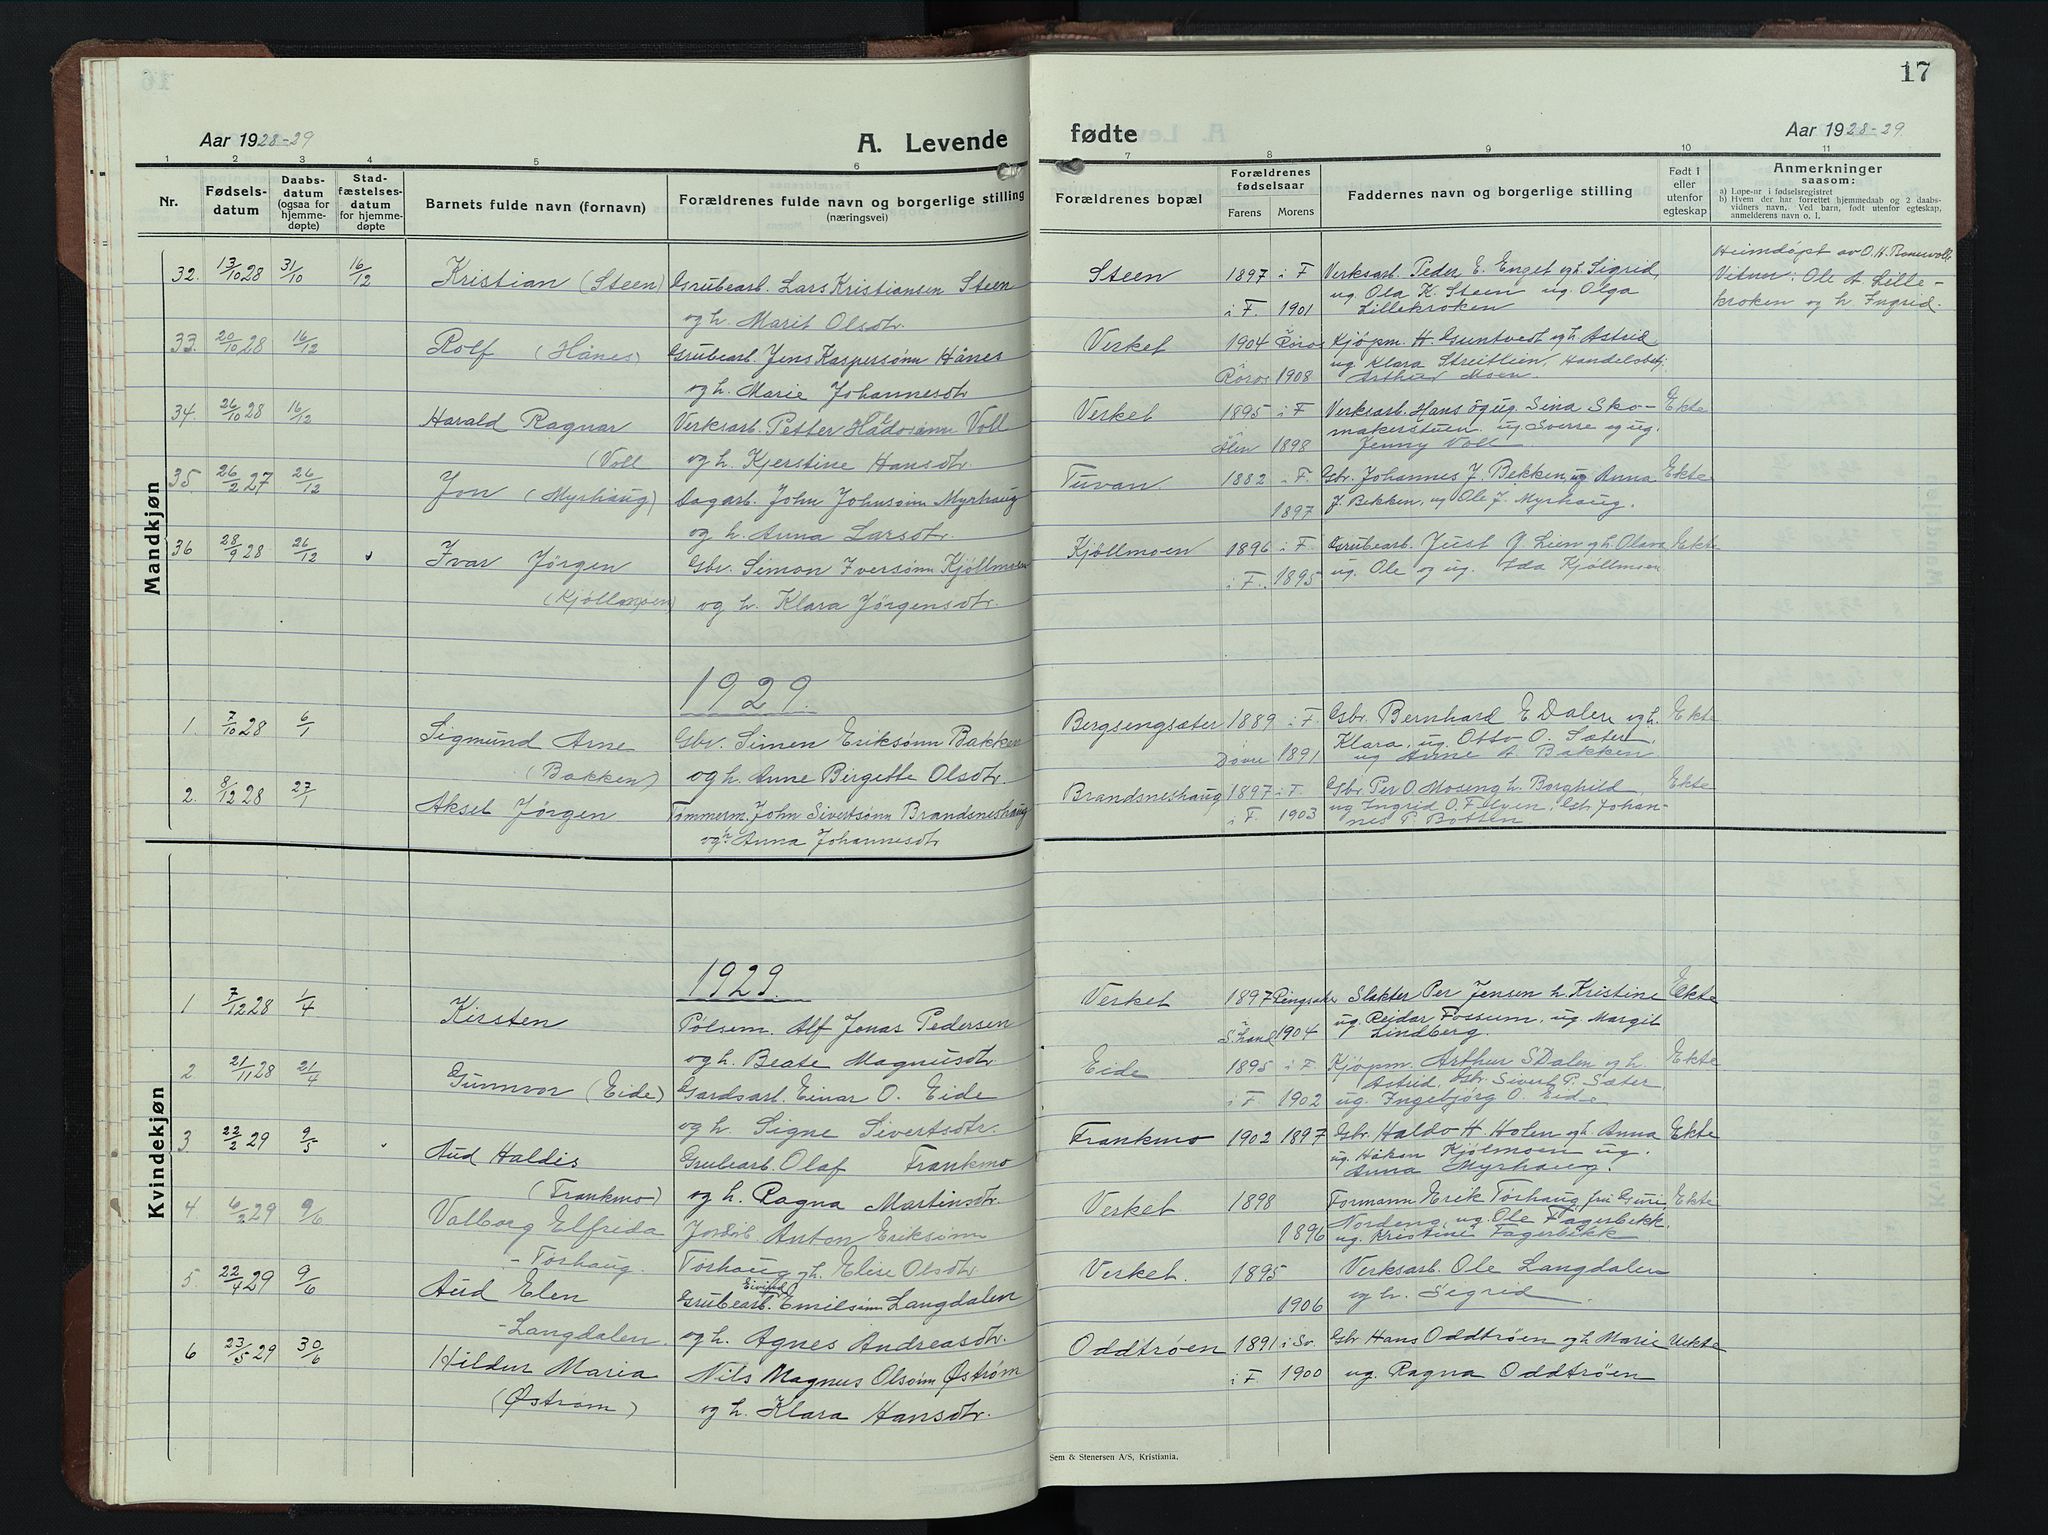 17
Aar 1928-29
A. Levende
fødte
Aar 1928-29
1 2 3 4 5 6 7 8 9 10 11
Nr.
Fødsels-
datum
Daabs-
datum
(ogsaa for
hjemme-
døpte)
Stad-
fæstelses-
datum
for hjemme-
døpte
Barnets fulde navn (fornavn)
Forældrenes fulde navn og borgerlige stilling
(næringsvei)
Forældrenes bopæl
Forældrenes
fødselsaar
Farens Morens
Faddernes navn og borgerlige stilling
Født i
eller
utenfor
egteskap
Anmerkninger
saasom:
a) Løpe-nr i fødselsregistret
b) Hvem der har forrettet hjemmedaab og 2 daabs-
vidners navn. Ved barn, født utenfor egteskap,
anmelderens navn o. l.
Mandkjøn
32. 13/10 28 31/10 16/12 Kristian (Steen) Grubearb. Lars Kristiansen Steen Steen 1897 i F Verksarb. Peder E. Enget og h. Sigrid, Heimdøpt av O.H.
og h. Marit Olsdtr. i F. 1901 ug. Ola K. Steen ug. Olga Vitner: Ole A. Lille-
Lillekroken kroken og h. Ingrid.
33. 20/10 28 16/12 Rolf (Hånes) Grubearb. Jens Kaspersønn Hånes Verket 1904 Røros Kjøpm. H. Guntvedt og h. Astrid
og h. Marie Johannesdtr. Røros 1908 ug. Klara Streitlien, Handelsbetj.
Arthur Moen.
34. 26/10 28 16/12 Harald Ragnar Verksarb. Petter Voll Verket 1895 i F Verksarb. Hans og ug. Sina Sko- Ekte
(Voll og h. Kjerstine Hansdtr. Ålen 1898 makerstuen. ug. Sverre og ug.
Jenny Voll
35 26/2 27 26/12 Jon (Myrhaug) Dagarb. John Johnsønn Myrhaug Tuvan. 1882 i F. Gbr. Johannes J. Bekken, ug Anna Ekte
og h. Anna Larsdtr. 1897 J. Bekken, ug Ole J. Myrhaug.
36 28/9 28 26/12 Ivar Jørgen Gbr. Simon Iversønn Kjøllmoen Kjøllmoen 1896 i F. Grubearb. Just G. Lien og h. Olava Ekte
(Kjøllmoen) og h. Klara Jørgensdtr. i F. 1895 ug. Ole og ug. Ida Kjøllmoen
1929.
1. 7/10 28 6/1 Sigmund Arne Gbr. Simen Eriksønn Bakken Bergsengsæter 1889 i F. Gbr. Bernhard E Dalen og h. Ekte
(Bakken) og h. Anne Birgette Olsdtr. Dovre 1891 Klara, ug. Otto O. Sæter,
ug Anne A. Bakken
2. 8/12 28 27/1 Aksel Jørgen Tømmerm. John Sivertsønn Brandsneshaug Brandsneshaug 1897 i F. Gbr. Per O. Moseng h. Borghild, Ekte
og h. Anna Johannesdtr i F. 1903 ug Ingrid O. Elven, Gbr. Johan-
nes P. Botten
Kvindekjøn
1929.
1 7/12 28 1/4 Kirsten Pølsem. Alf Jonas Pedersen Verket 1897 Ringsaker Slakter Per Jensen h. Kristine Ekte
og h. Beate Magnusdtr. 1904 ug. Reidar Fossum, ug. Margit
Lindberg.
2 21/11 28 21/4 Gunnvor (Eide) Gardsarb. Einar O. Eide Eide 1895 i F. Kjøpm. Arthur S Dalen og h. Ekte
og h. Signe Sivertsdtr. i F. 1902 Astrid, Gbr. Sivert P. Sæter,
ug. Ingebjørg O. Eide
3 22/2 29 9/5 Aud Haldis Grubearb. Olaf Frankmo Frankmo 1902 1897 Gbr. Haldo H. Holen og h. Anna Ekte
(Frankmo) og h. Ragna Martinsdtr. ug. Håkon Kjølmoen ug.
Anna Myrhaug.
4. 6/2 29 9/6 Valborg Elfrida Jordarb. Anton Eriksønn Verket. 1898 Formann Erik Torhaug, fru Guri Ekte
- Torhaug. Torhaug og h. Elise Olsdtr. 1896 Nordeng, ug. Ole Fagerbekk.
ug. Kristine Fagerbekk
5. 22/4 29 9/6 Aud Elen Grubearb. Eivind Emilsønn Langdalen Verket. 1895 Verksarb. Ole Langdalen
- Langdalen. og h. Agnes Andreasdtr. 1906 og h. Sigrid.
6 23/5 29 30/6 Hildur Maria Nils Magnus Olsønn Østrøm Oddtrøen 1891 i Sv. Gbr Hans Oddtrøen og h. Marie Uekte
(Østrøm) og h. Klara Hansdtr. i F. 1900 ug. Ragna Oddtrøen
Sem & Stenersen A/S, Kristiania.